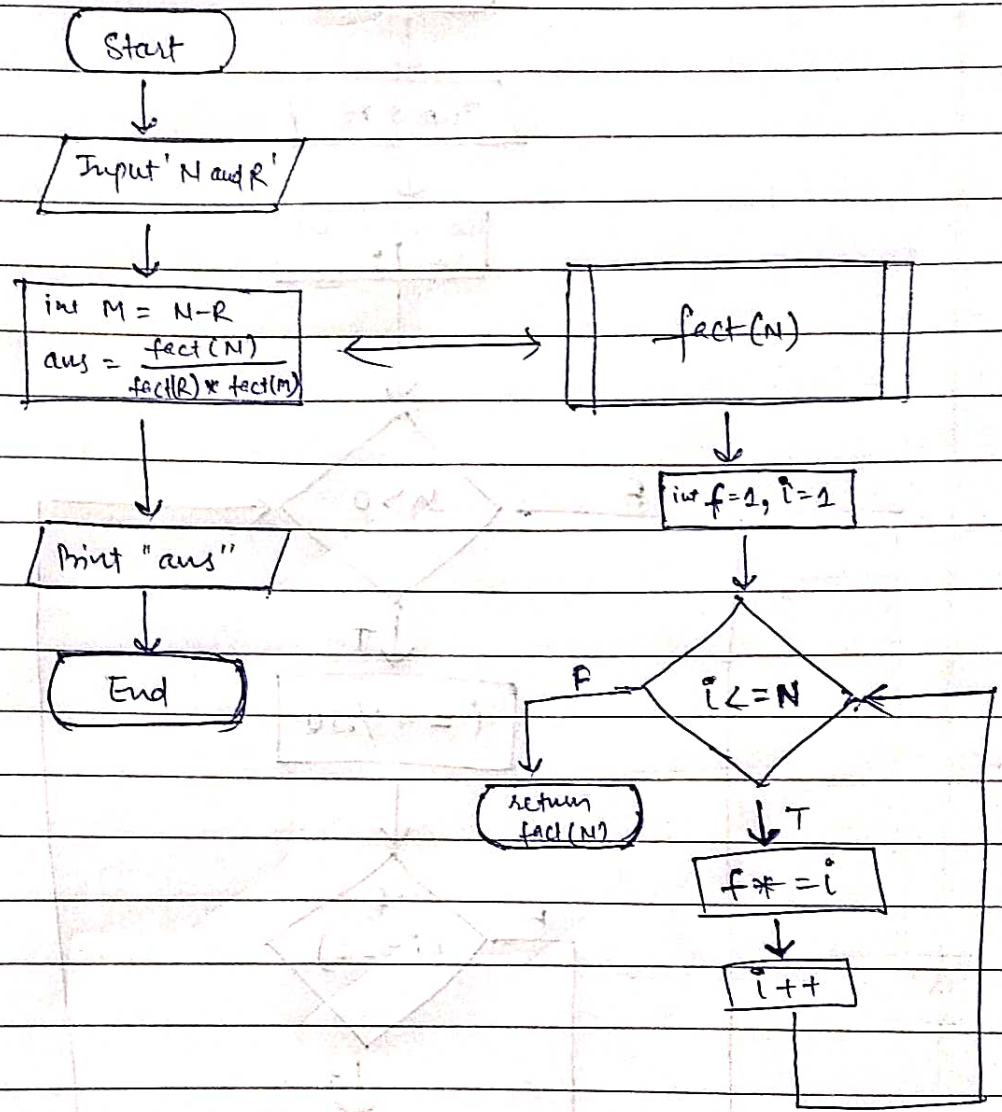 Start
Input 'N and R'
int M = N-R
ans = fact(N)
fact(R) * fact(M)
Print "ans"
End
fact(N)
int f=1, i=1
i<=N
F
return
fact(N)
T
f* =i
i++